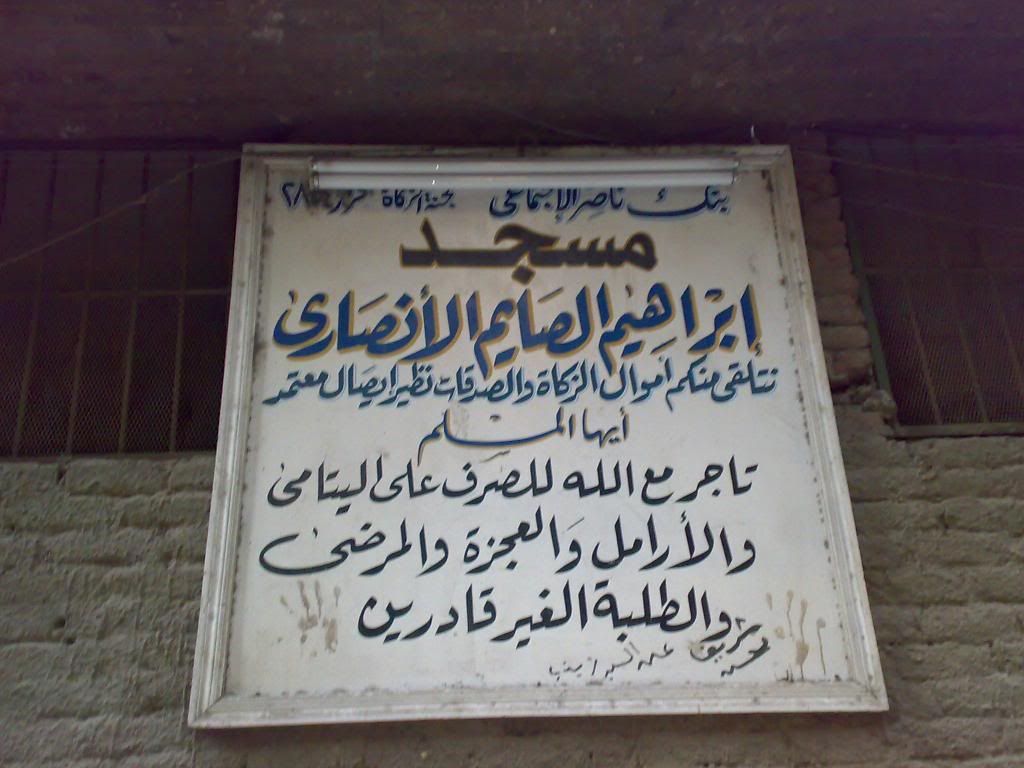 بنك ناصر الإجتماعى لجنة الزكاة
مسجد
إبراهيم الصايم الأنصارى
نتلقى منكم أموال الزكاة والصدقات نظير إيصال معتمد
أيها المسلم
تاجر مع الله للصرف على اليتامى
والأرامل والعجزة والمرضى
والطلبة الغير قادرين